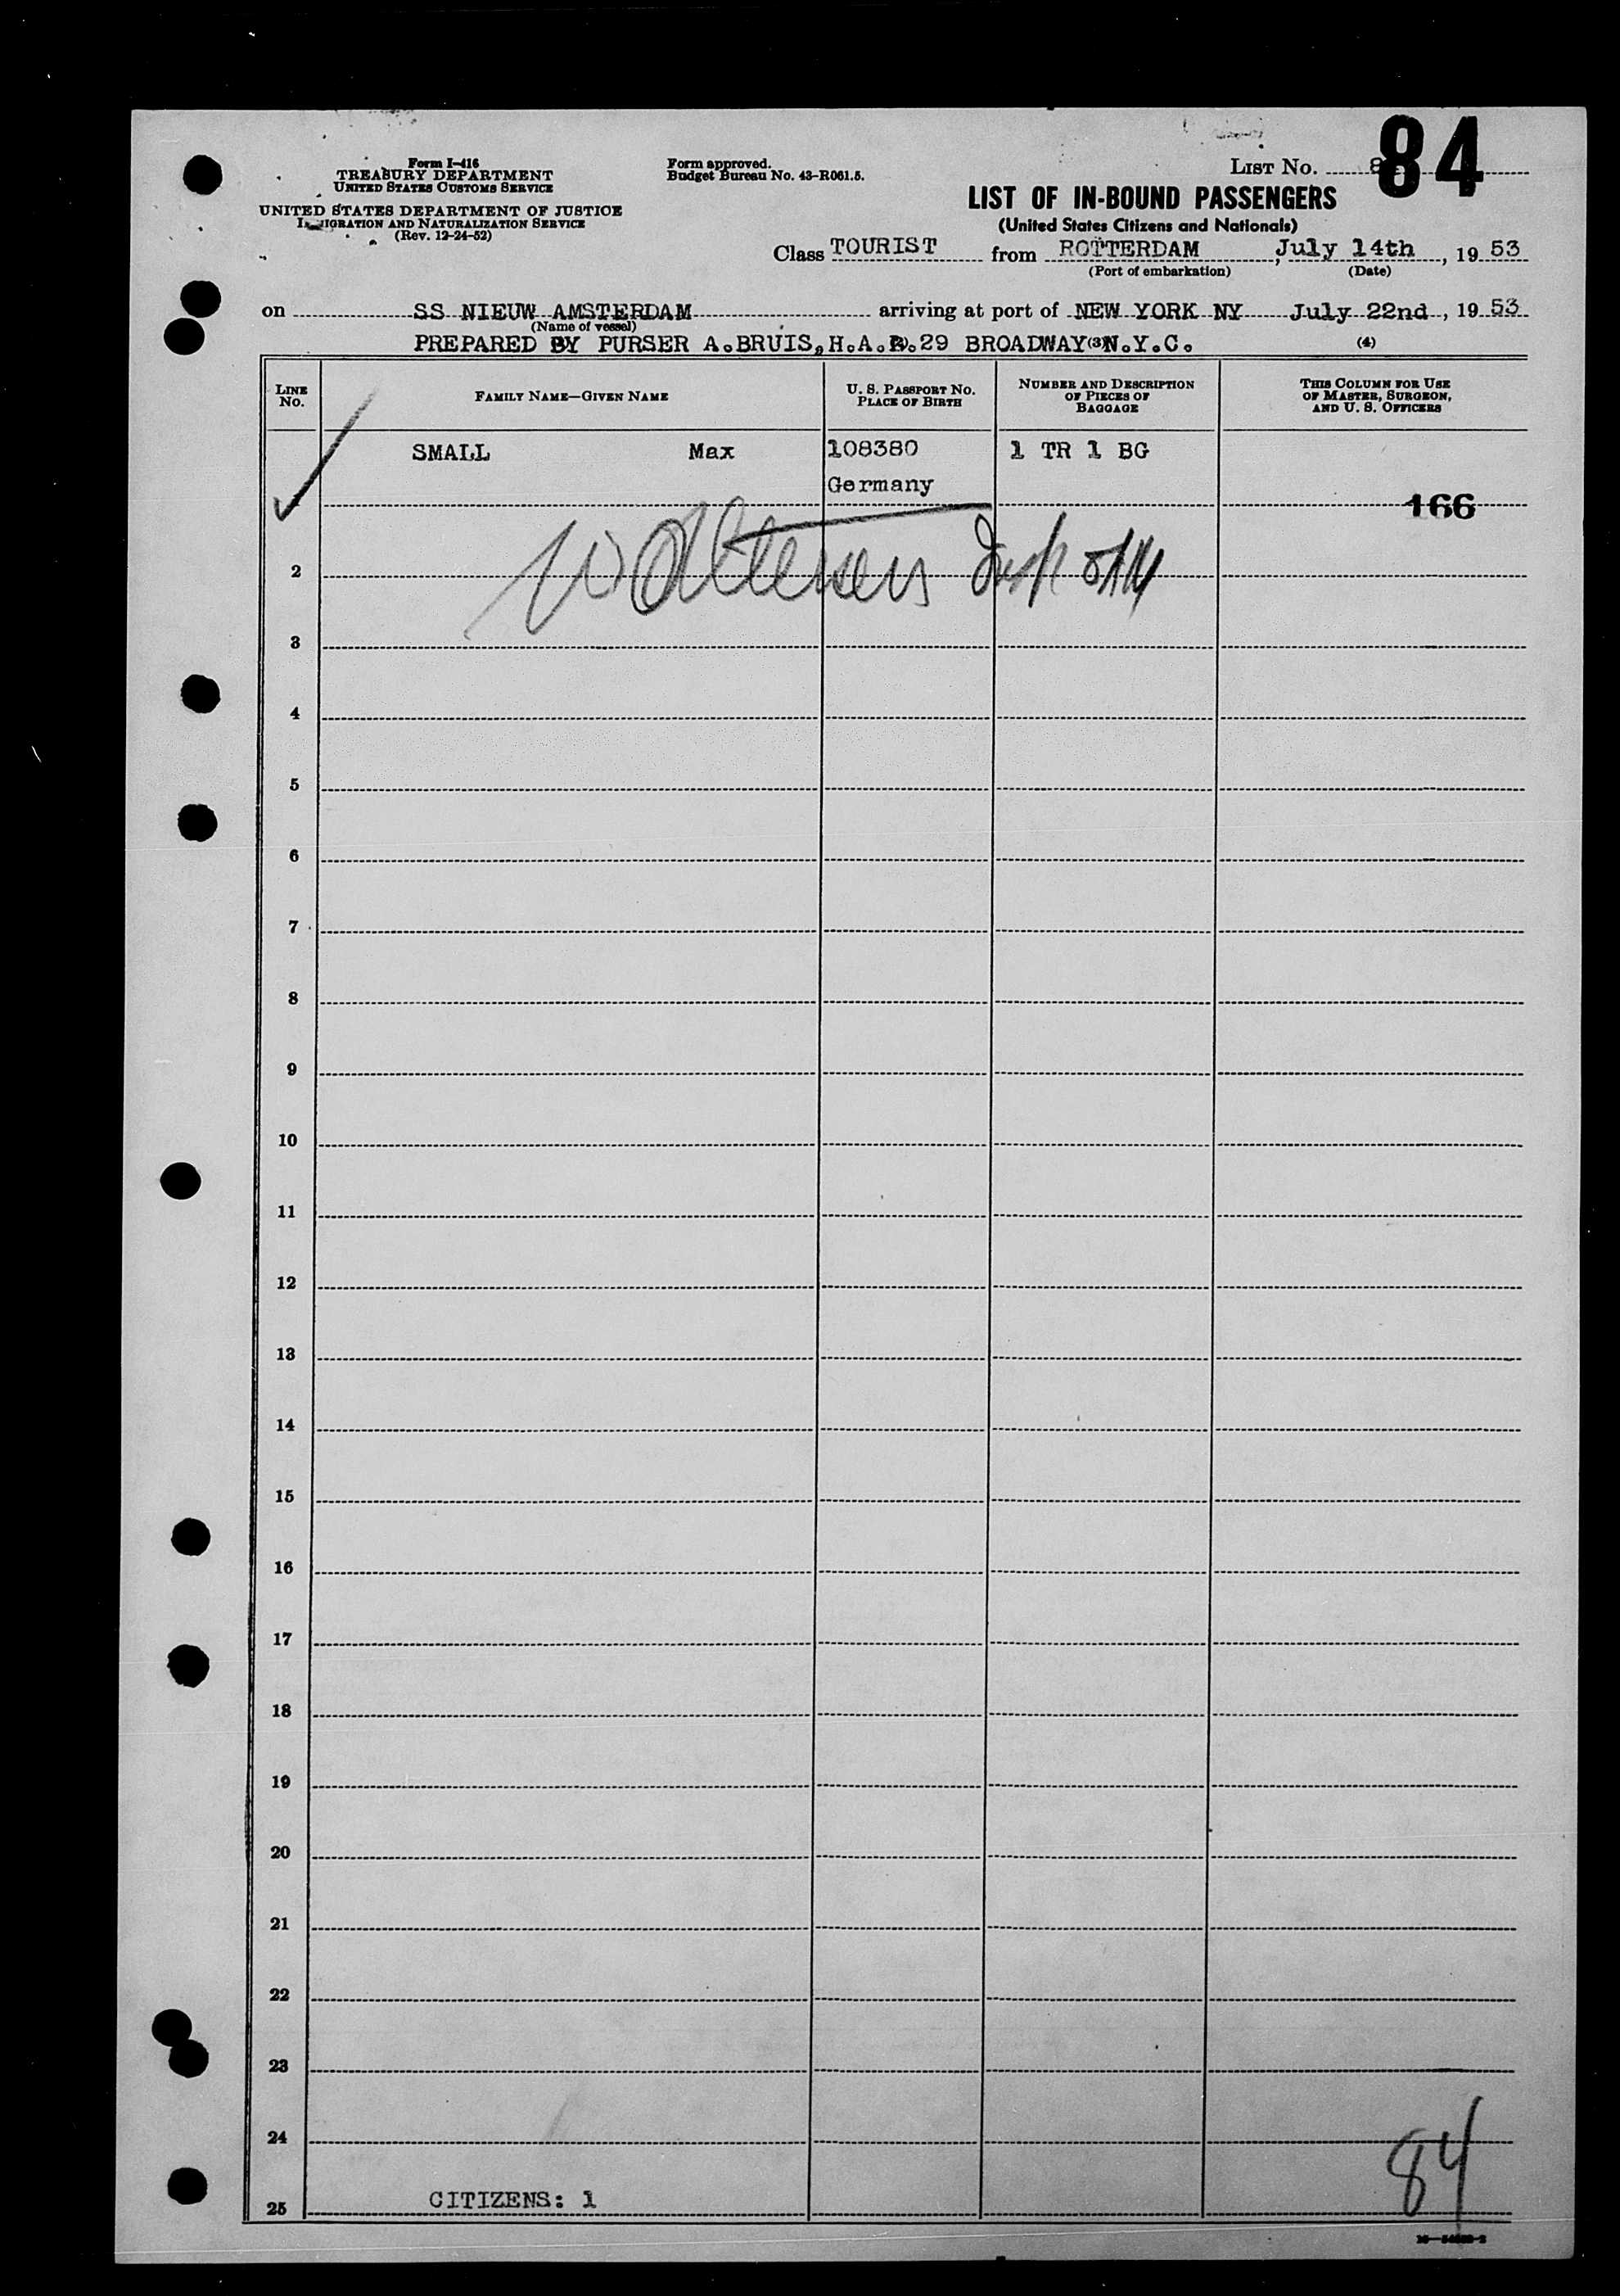 Form I-416
TREASURY DEPARTMENT
UNITED STATES CUSTOMS SERVICE
UNITED STATES DEPARTMENT OF JUSTICE
IMMIGRATION AND NATURALIZATION SERVICE
(Rev. 12-24-52)
Form approved.
Budget Bureau No. 43-R061.5.
LIST No. 84
LIST OF IN-BOUND PASSENGERS
(United States Citizens and Nationals)
Class TOURIST from ROTTERDAM, July 14th, 19 53
(Port of embarkation) (Date)
on SS NIEUW AMSTERDAM arriving at port of NEW YORK NY July 22nd, 19 53
(Name of vessel)
PREPARED BY PURSER A.BRUIS, H.A. 29 BROADWAY (3) N.Y.C. (4)
LINE No. FAMILY NAME—GIVEN NAME U. S. PASSPORT No. PLACE OF BIRTH NUMBER AND DESCRIPTION OF PIECES OF BAGGAGE THIS COLUMN FOR USE OF MASTER, SURGEON, AND U. S. OFFICERS
SMALL Max 108380 1 TR 1 BG
Germany
166
2
3
4
5
6
7
8
9
10
11
12
13
14
15
16
17
18
19
20
21
22
23
24
84
25 CITIZENS: 1